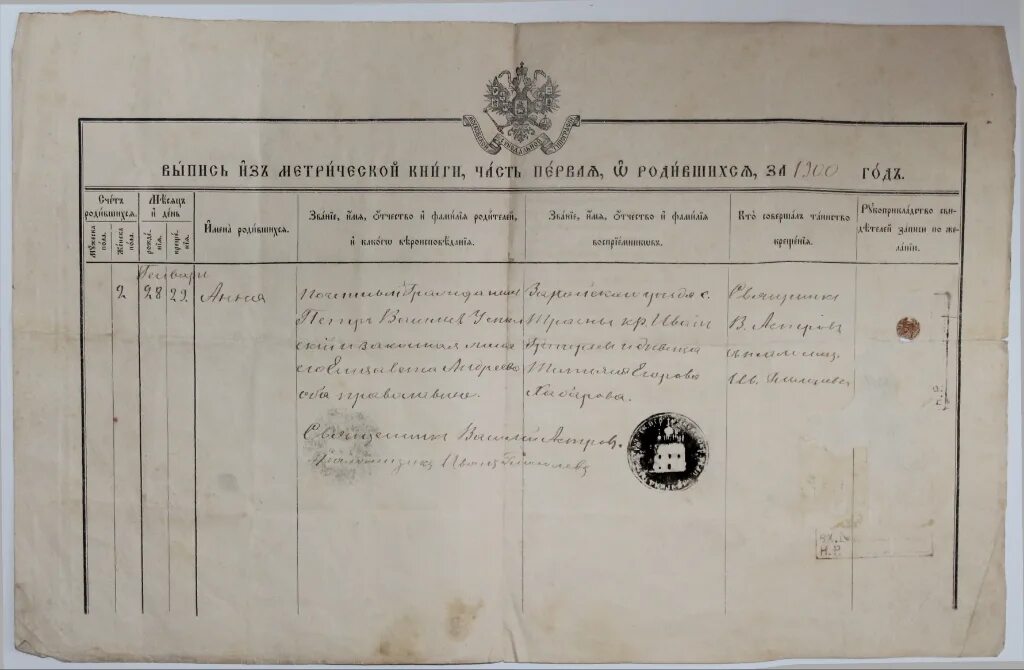 Вы́пись и҆зъ метри́ческой кни́ги, ча́сть пе́рваѧ, ѡ҆ роди́вшихсѧ, за 1900 го́дъ.
Сче́тъ роди́вшихсѧ.
Мꙋ́жеска по́ла.
Же́нска по́ла.
Мѣ́сѧцъ и҆ де́нь
рожде́нїѧ.
креще́нїѧ.
И҆мена̀ роди́вшихсѧ.
Зва́нїе, и҆́мѧ, ѻ҆́тчество и҆ фами́лїѧ роди́телей,
и҆ како́гѡ вѣроисповѣ́данїѧ.
Зва́нїе, и҆́мѧ, ѻ҆́тчество и҆ фами́лїѧ
воспрїе́мникѡвъ.
Кто̀ соверша́лъ та́инство
креще́нїѧ.
Рꙋкоприкла́дство сви-
дѣ́телей за́писи по же-
ла́нїю.
Генваря
2
28
29
Анна
Почетный Гражданин
Петръ Василіевъ Успен
скій и законная жена
его Елизавета Андреева
оба православные.
Зарайскаго уезда с.
кр. Иванъ
и девица
Егорова
Хабарова.
Священникъ
В. Астровъ
съ псаломщ.
Ив.
Священникъ Василій Астровъ.
Псаломщикъ Иванъ
Н.Р.